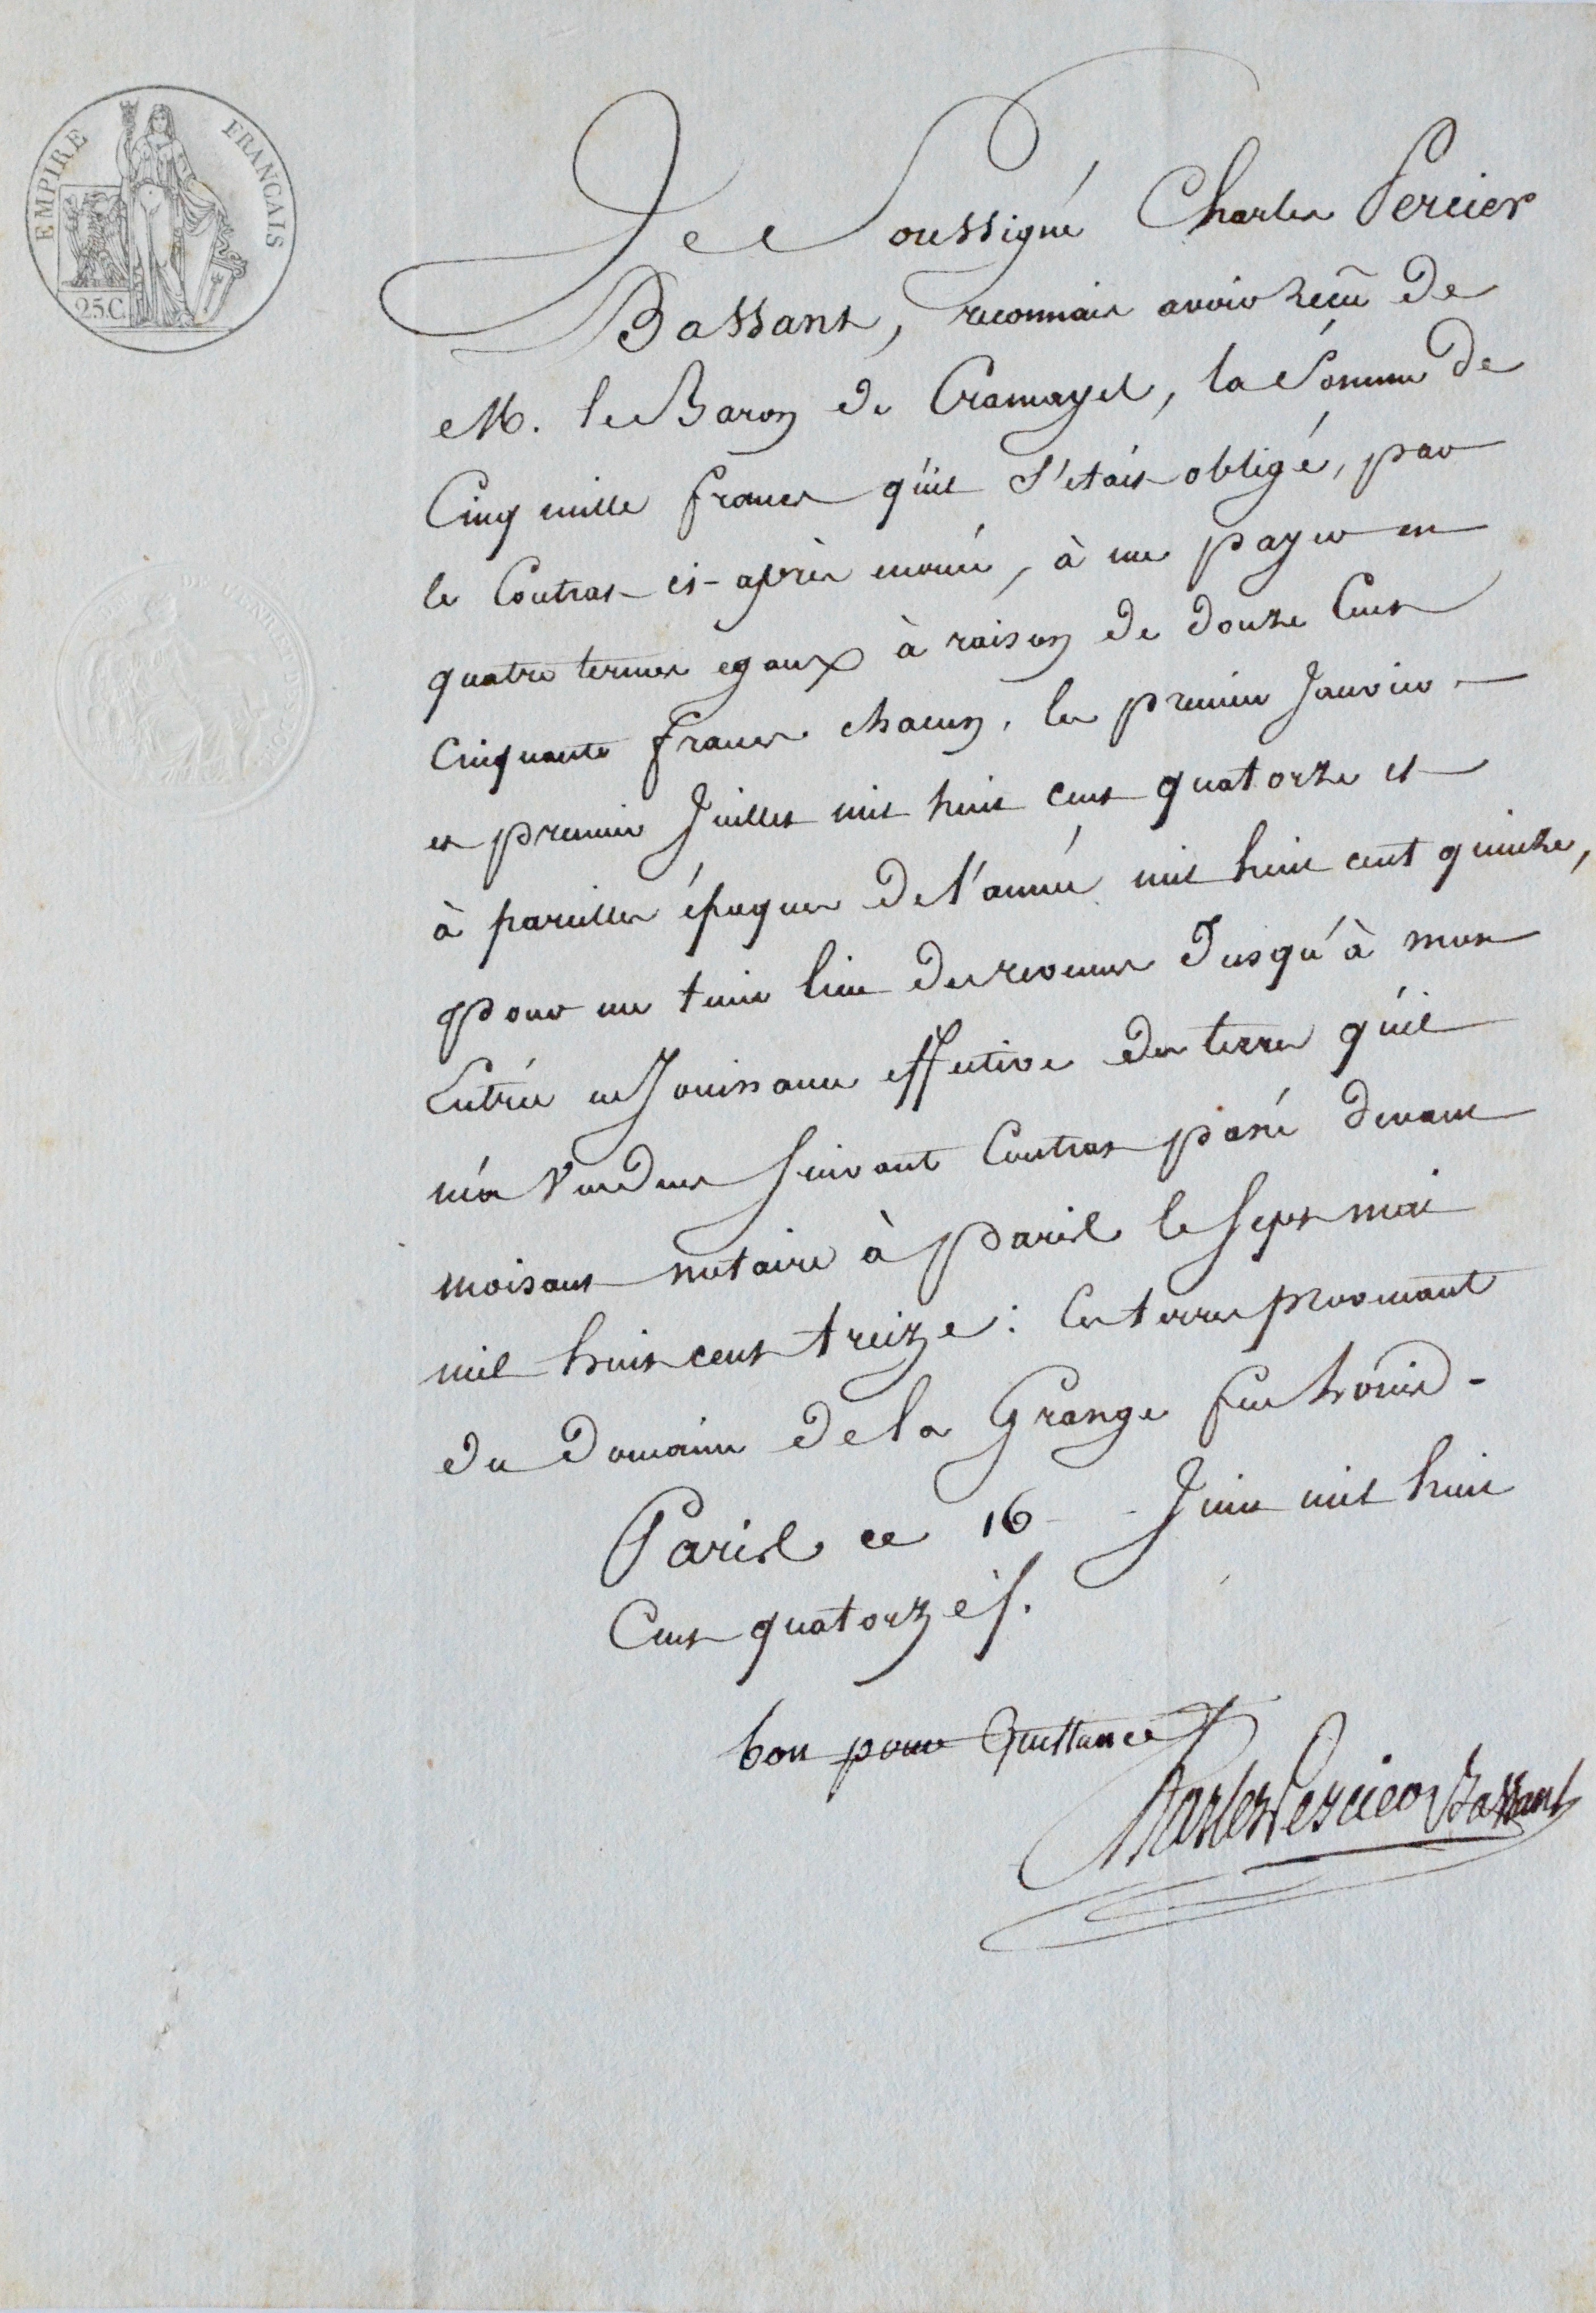 EMPIRE FRANÇAIS
25C.
Je Soussigné Charles Percier
Bassant, reconnais avoir reçu de
M. le Baron de Cramayel, la Somme de
Cinq mille francs qu'il s'etait obligé, par
le Contrat ci-après enoncé, à me payer en
quatre termes egaux à raison de douze Cent
cinquante francs chacun, les premier Janvier
et premier Juillet mil huit cent quatorze et
à pareilles époques de l'année mil huit cent quinze,
pour me tenir lieu des revenus Jusqu'à mon
Entrée en Jouissance effective des terres qu'il
m'a Vendues suivant Contrat passé devant
moisant notaire à Paris le sept mai
mil huit cent treize : Ces terres provenant
du Domaine de la Grange feu Louis -
Paris ce 16 Juin mil huit
Cent quatorze /.
bon pour Quittance
Charles Percier Bassant